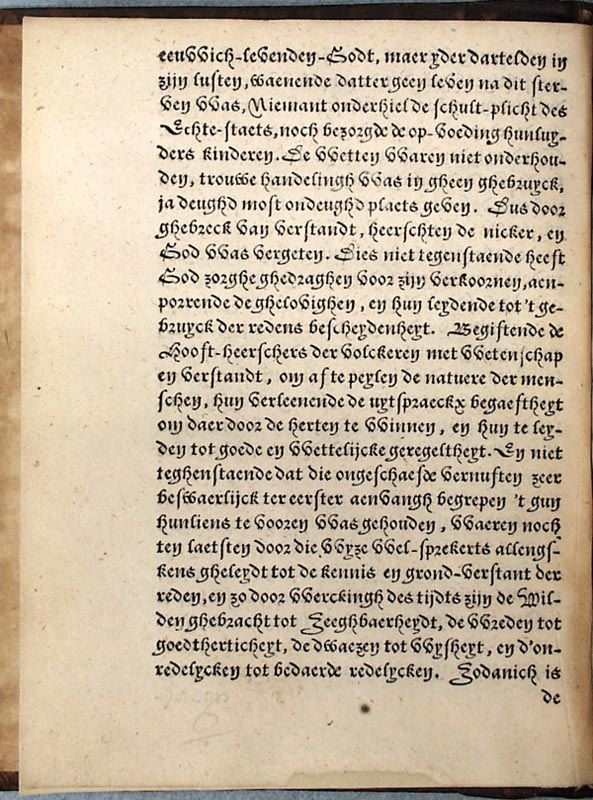 eeuvvich-levenden-Godt, maer yder dartelden in
zijn lusten, waenende datter geen leven na dit ster-
ven vvas, Niemant onderhiel de schult-plicht des
Echte-staets, noch bezorgde de op-voeding hunluy-
ders kinderen. De vvetten vvaren niet onderhou-
den, trouwe handelingh vvas in gheen ghebruyck,
ja deughd most ondeughd plaets geven. Dus door
ghebreck van verstandt, heerschten de nicker, en
God vvas vergeten. Dies niet tegenstaende heeft
God zorghe ghedraghen voor zijn verkoornen, aen-
porrende de ghelovighen, en hun leydende tot 't ge-
bruyck der redens bescheydenheyt. Begiftende de
Hooft-heerschers der volckeren met vvetenschap
en verstandt, om af te peylen de natuere der men-
schen, hun verleenende de uytspraeckx begaeftheyt
om daer door de herten te vvinnen, en hun te ley-
den tot goede en vvettelijcke geregeltheyt. En niet
teghenstaende dat die ongeschaefde vernuften zeer
beswaerlijck ter eerster aenvangh begrepen 't gun
hunliens te vooren vvas gehouden, vvaeren noch
ten laetsten door die vvyze vvel-sprekerts allengs-
kens gheleydt tot de kennis en grond-verstant der
reden, en zo door vverckingh des tijdts zijn de Wil-
den ghebracht tot Zeeghbaerheydt, de vvreden tot
goedtherticheyt, de dwaezen tot vvysheyt, en d'on-
redelycken tot bedaerde redelycken. Zodanich is
de